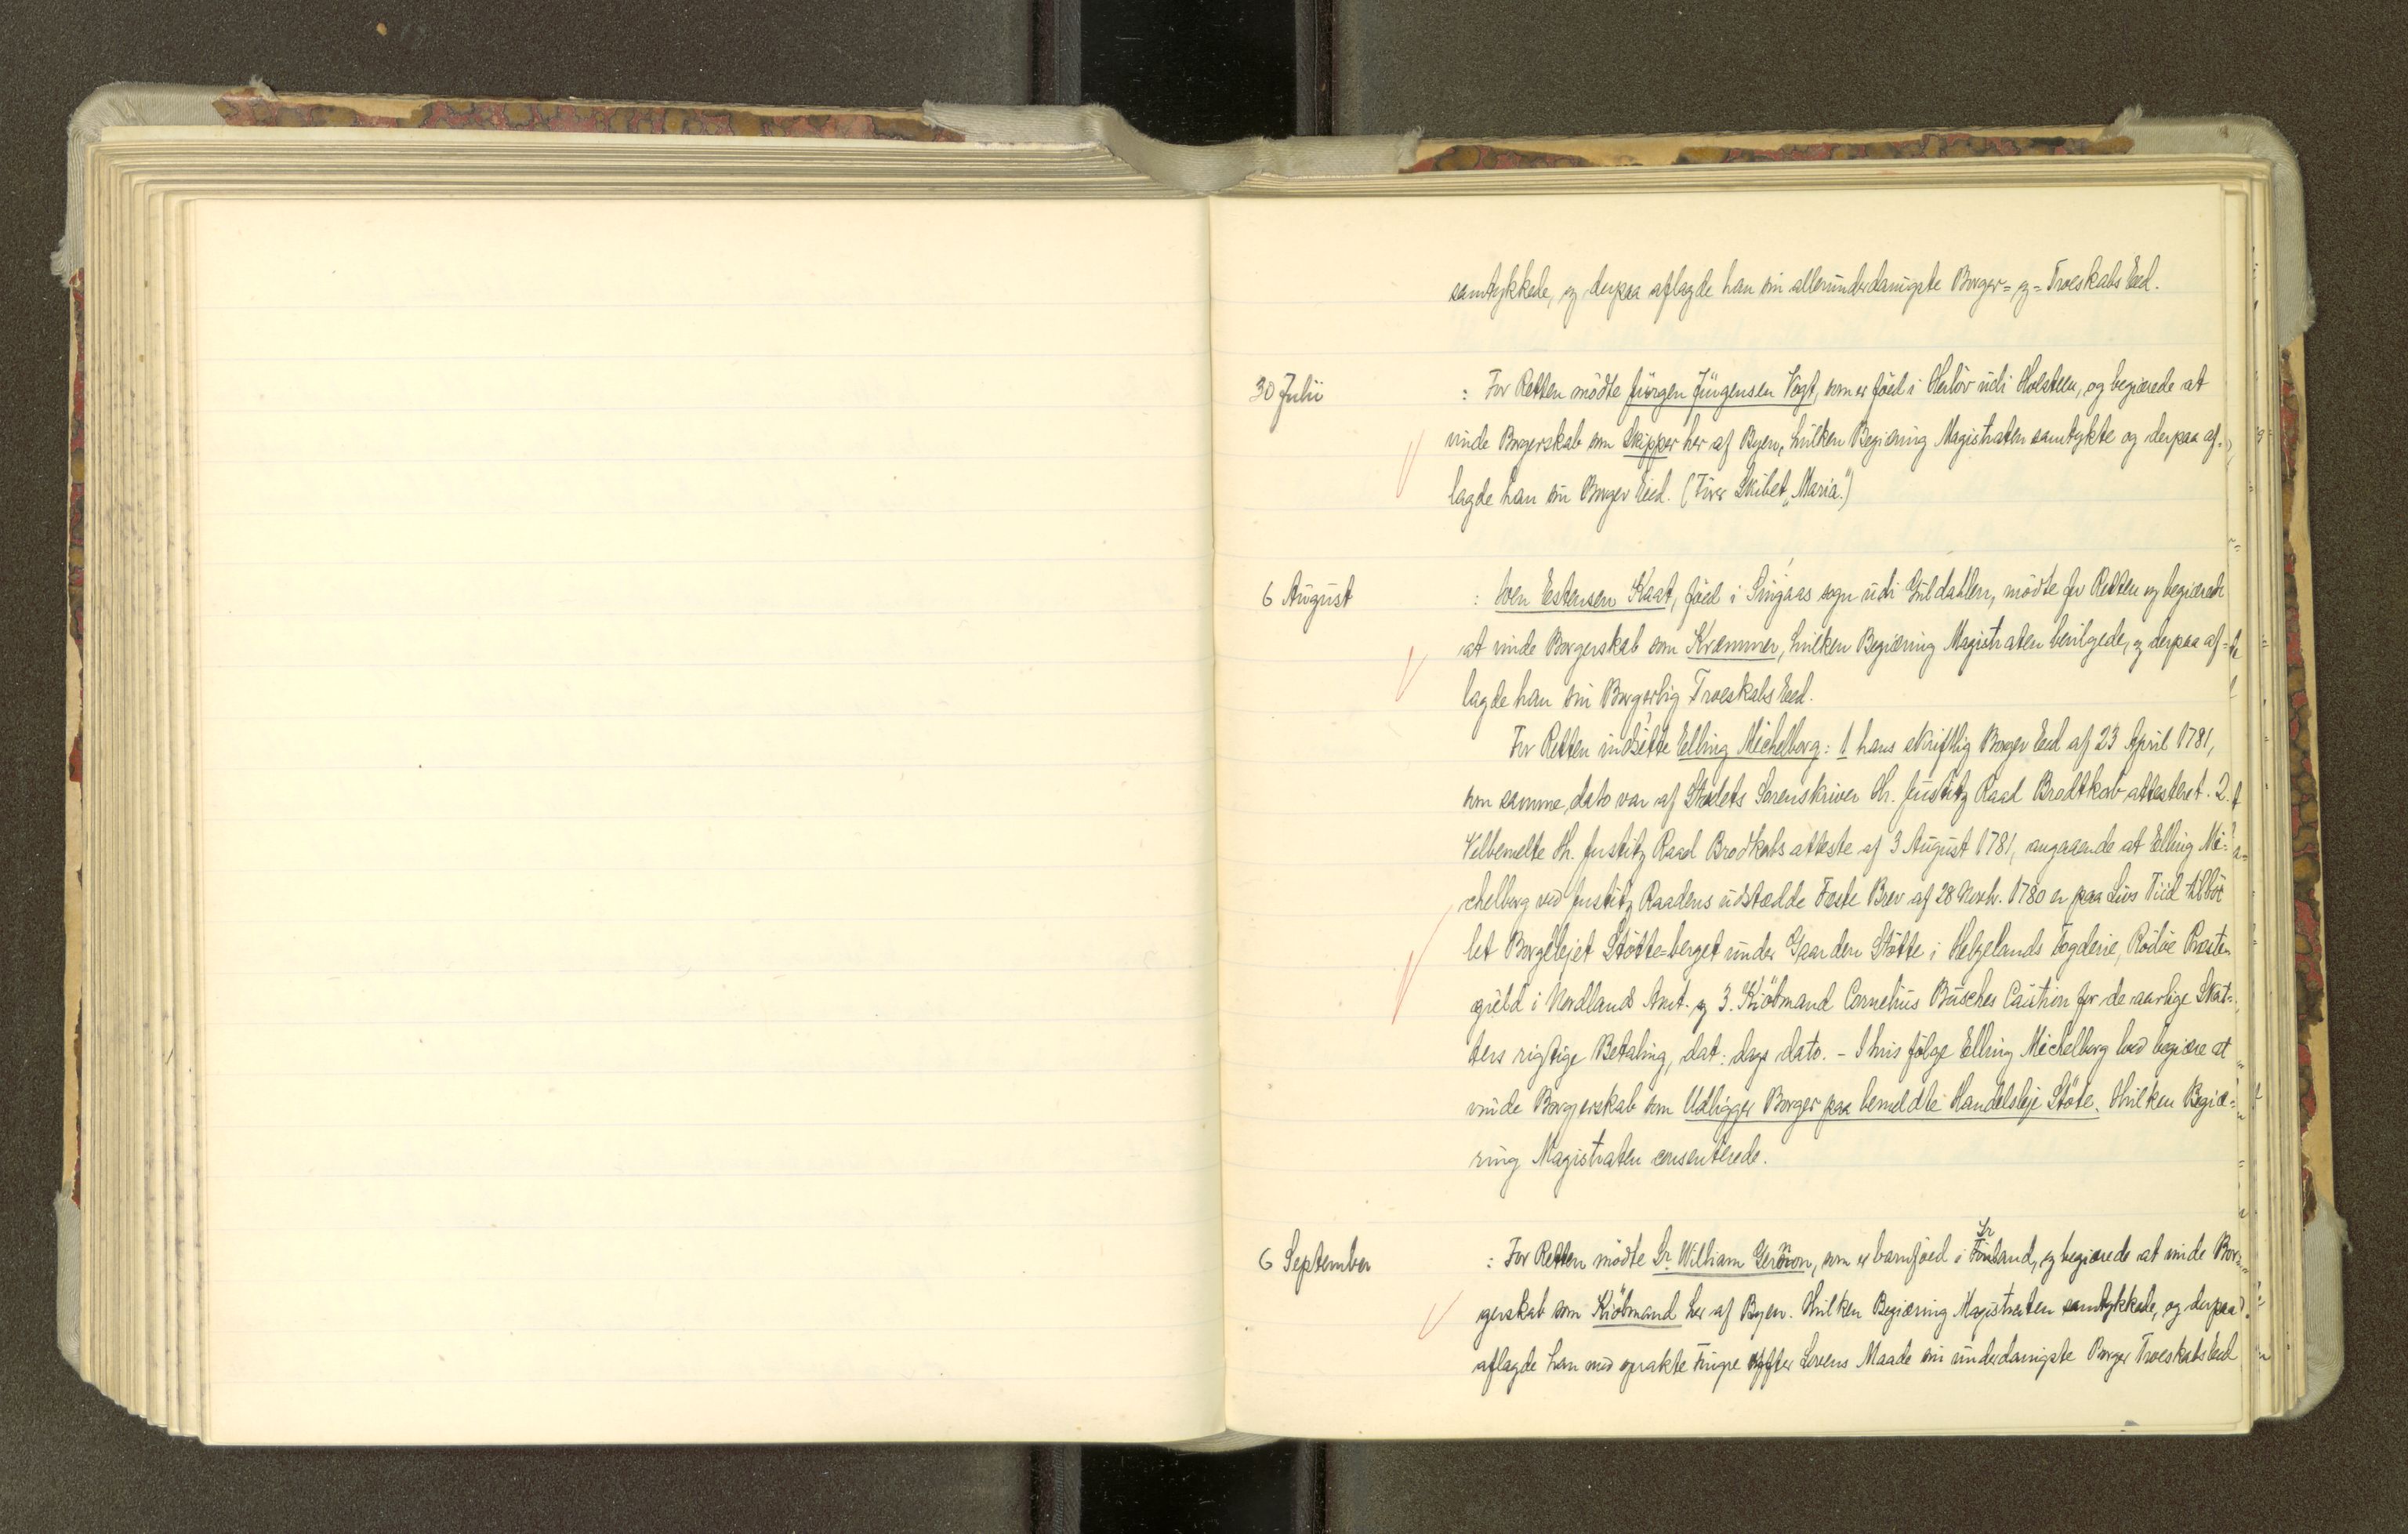 samtykkede, og derpaa aflagde han sin allerunderdanigste Borger= og = Troeskabs Eed.
30 Julii : For Retten mödte Jürgen Jürgensen Vogt, som er föed i Heilöv udi Holsteen, og begiærede at
vinde Borgerskab som Skipper her af Byen, hvilken Begiæring Magistraten samtykte og derpaa af=
lagde han sin Borger Eed. (Förer Skibet „Maria“.)
6 August : Iven Estensen Kaat, föed i Singaas sogn udi Guldahlen, mödte for Retten og begiærede
at vinde Borgerskab som Kræmmer, hvilken Begiæring Magistraten bevilgede, og derpaa af=
lagde han sin Borgerlig Troeskabs Eed.
For Retten indsatte Elling Michelborg: 1 hans skriftlig Borger Eed af 23 April 1781,
som samme dato var af Stædets Sorenskriver Hr. Justitz Raad Brodtkorb attesteret. 2.
Velbemelte Hr. Justitz Raad Brodkorbs atteste af 3 August 1781, angaaende at Elling Mi=
chelborg ved Justitz Raadens udstædde Fæste Brev af 28 Novbr. 1780 er paa Livs Tiid tilbör
let Borgelejet Stötte=berget under Gaarden Stötte i Helgelands Fogderie, Rödöe Præste=
gield i Nordlands Amt. og 3. Kiöbmand Cornelius Büsches Caution for de aarlige Skat=
ters rigtige Betaling, dat: dags dato. - I hvis fölge Elling Michelborg loed begiære at
vinde Borgerskab som Udligger Borger paa bemeldte Handelsleje Stöte. Hvilken Begiæ=
ring Magistraten consenterede.
6 September : For Retten mödte Sr. William Gernon, som er barnföed i Irland, og begiærede at vinde Bor=
gerskab som Kiöbmand her af Byen. Hvilken Begiæring Magistraten samtykkede, og derpaa
aflagde han med oprakte Fingre effter Lovens Maade sin underdanigste Borger Troeskabs Eed